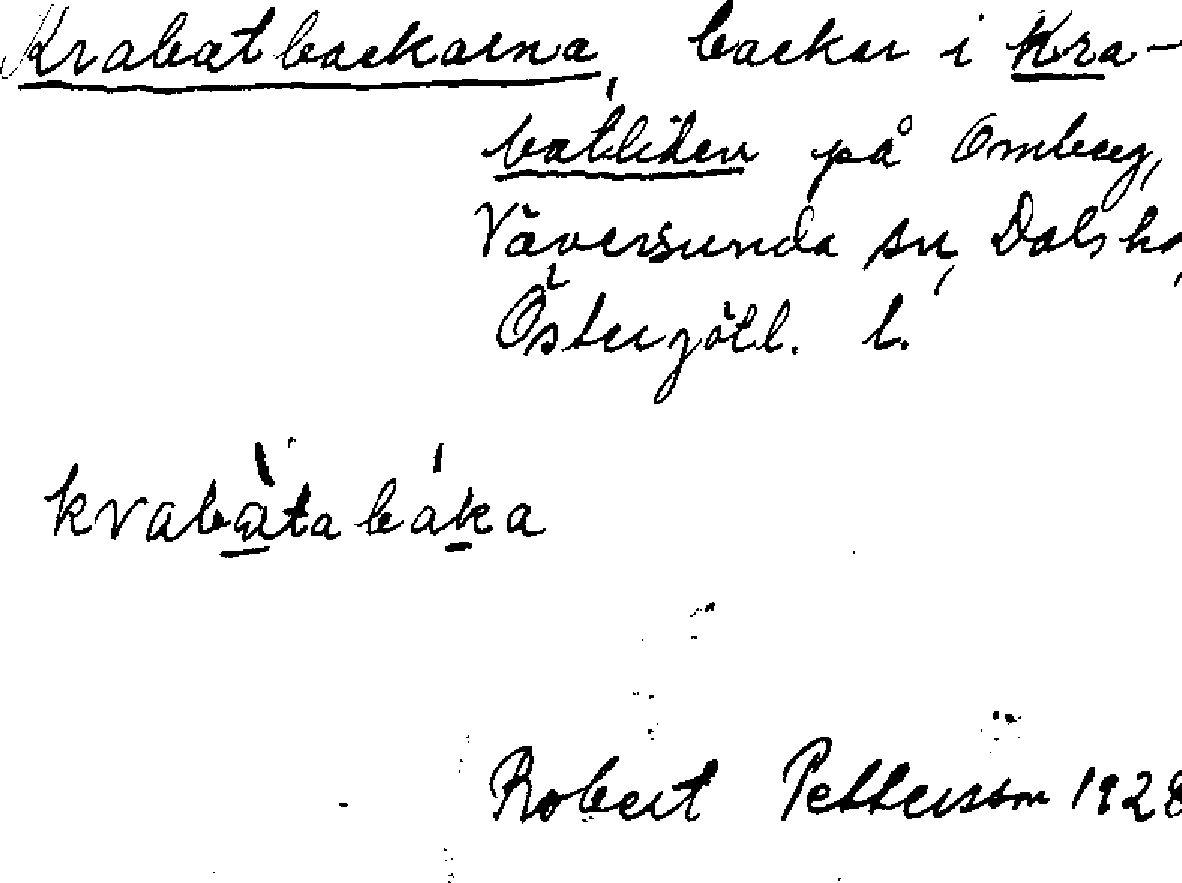 Krabatbackarna, backar i Kra-
batliden på Omberg,
Väversunda sn, Dals hd,
Östergötl. l.
kvabàtabáka
Robert Pettersson 1928